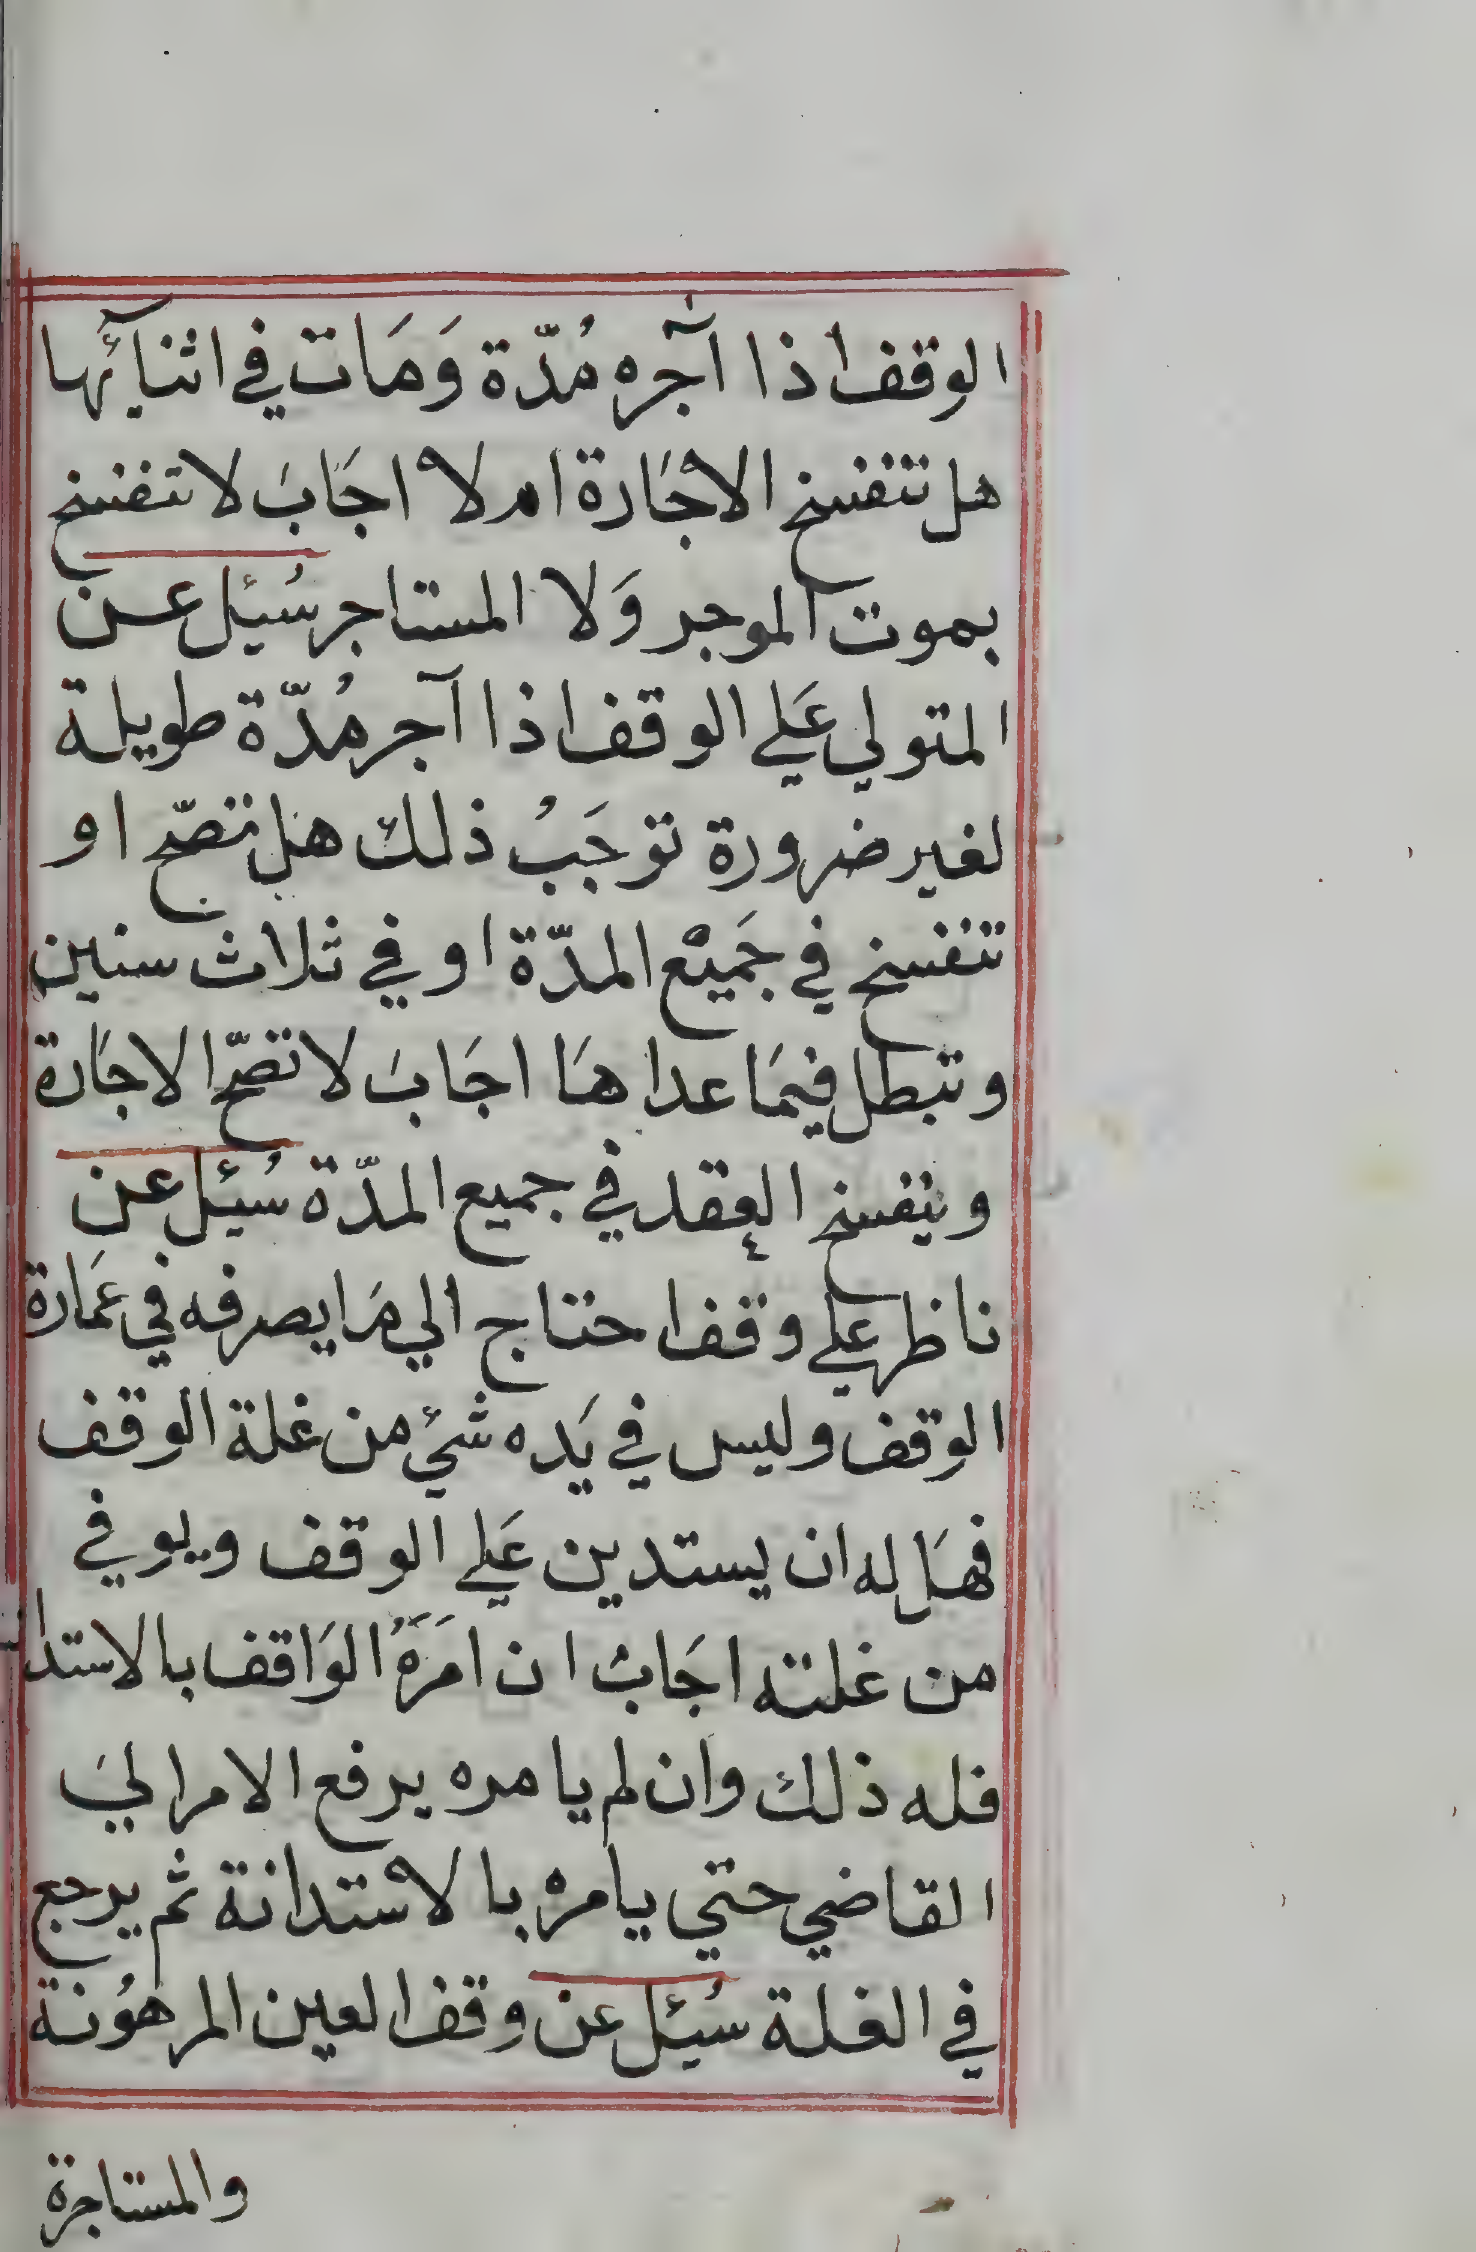 الوقف اذا آجره مُدّة وَمَات في اثنآئها
هل تنفسخ الاجَارة ام لا اجَابَ لا تنفسخ
بموت الموجر وَلا المستاجر سُئِل عن
المتولي عَلي الوقف اذا آجر مُدّة طويلة
لغير ضرورة توجَبُ ذلك هل تصّح او
تنفسخ في جَميْع المدّة او في ثلاث سنين
وتبطل فيمَا عداهَا اجَابَ لا تصّح الاجَارة
وينفسخ العقد في جميع المدّة سُئِل عن
ناظر علي وقف احتاج الي مَا يصرفه في عمَارة
الوقف وليس في يَده شيء من غلة الوقف
فهَل له ان يستدين عَلي الوقف ويوفي
من غلته اجَابَ ان امَرَهُ الوَاقف بالاستدا
فله ذلك وان لم يامره يرفع الامر اليَ
القاضي حتي يامره بالاستدانة ثم يرجع
في الغلة سُئِل عن وقف العين المرهُونة
والمستاجرة